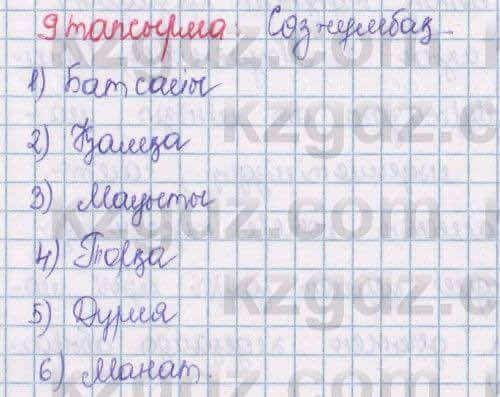 9 тапсырма. Сөзжұмбақ.
1) Батсайы
2) Қамқа
3) Мауыты
4) Торқа
5) Дүрия
6) Манат.
kzgdz.com